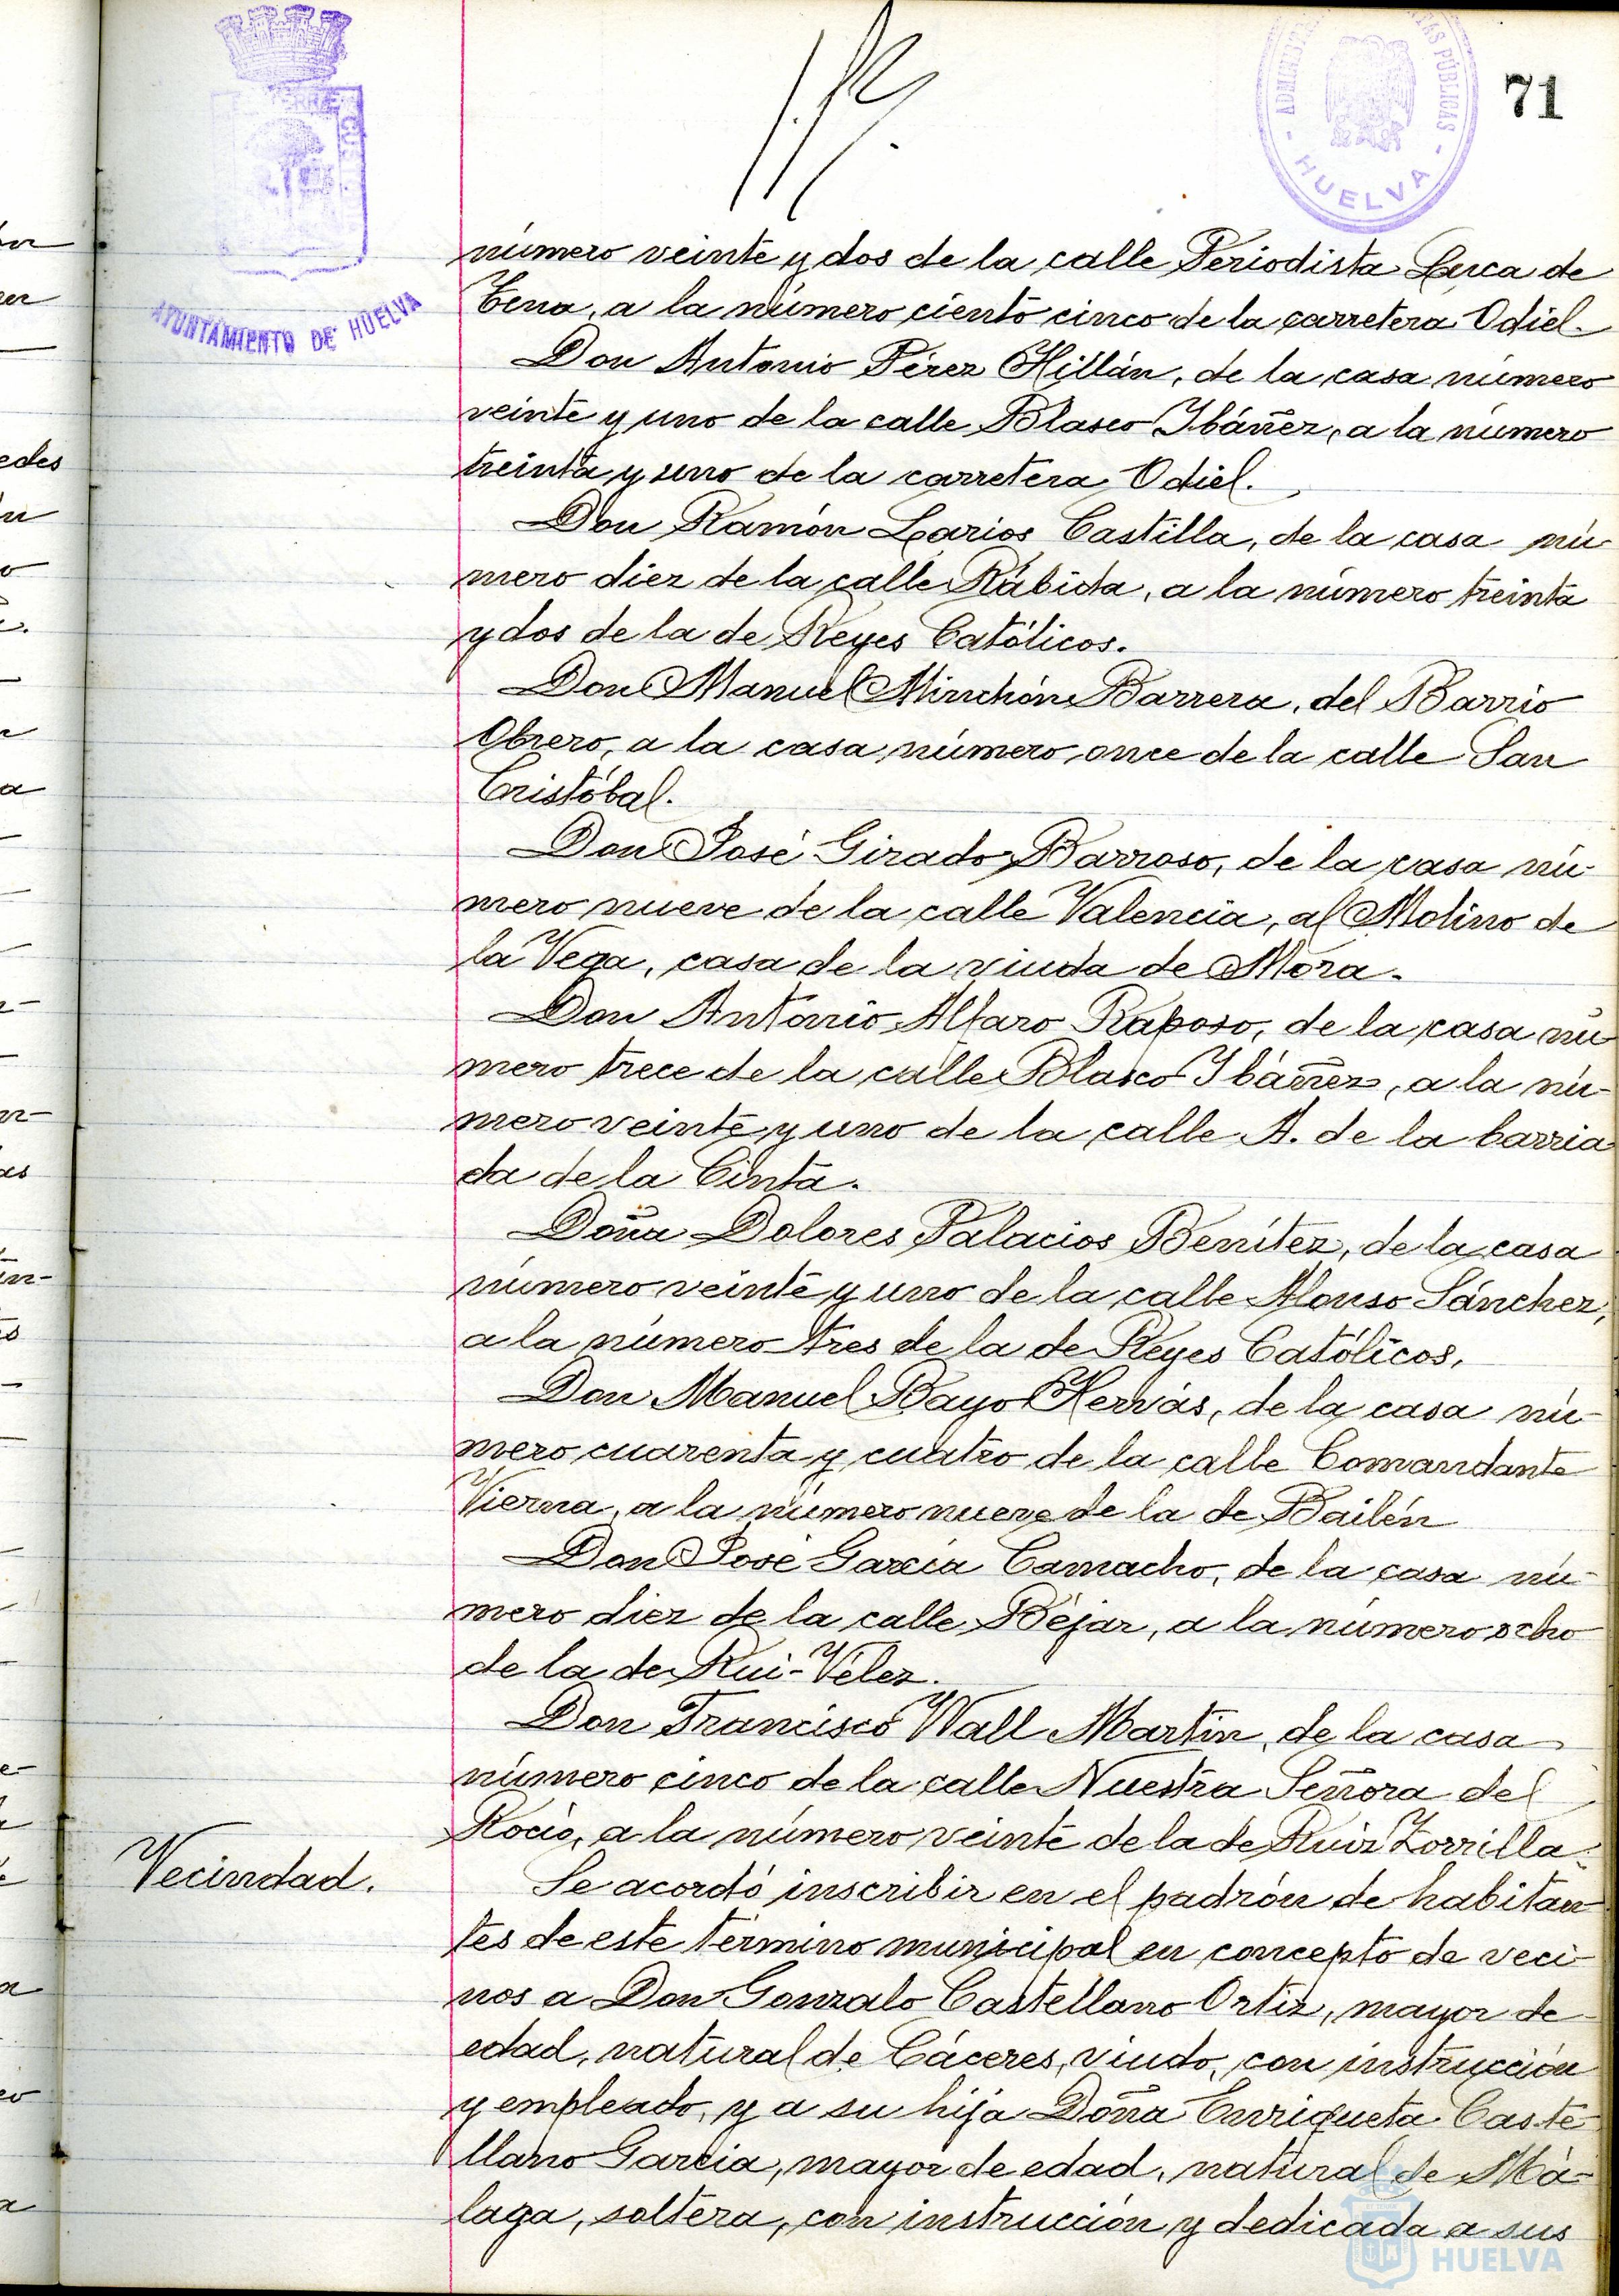 71
ADMINISTRACIÓN PÚBLICAS
- HUELVA -
AYUNTAMIENTO DE HUELVA
número veinte y dos de la calle Periodista Luca de
Tena, a la número ciento cinco de la carretera Odiel.
Don Antonio Pérez Hillán, de la casa número
veinte y uno de la calle Blasco Ibáñez, a la número
treinta y uno de la carretera Odiel.
Don Ramón Larios Castilla, de la casa nú-
mero diez de la calle Rábida, a la número treinta
y dos de la de Reyes Católicos.
Don Manuel Minchón Barrera, del Barrio
Obrero, a la casa número once de la calle San
Cristóbal.
Don José Girado Barroso, de la casa nú-
mero nueve de la calle Valencia, al Molino de
la Vega, casa de la viuda de Mora.
Don Antonio Alfaro Raposo, de la casa nú-
mero trece de la calle Blasco Ibáñez, a la nú-
mero veinte y uno de la calle A. de la barria
da de la Cinta.
Doña Dolores Palacios Benítez, de la casa
número veinte y uno de la calle Alonso Sánchez,
a la número tres de la de Reyes Católicos.
Don Manuel Bayo Hervás, de la casa nú-
mero cuarenta y cuatro de la calle Comandante
Vierna, a la número nueve de la de Bailén
Don José García Camacho, de la casa nú-
mero diez de la calle Béjar, a la número ocho
de la de Rui-Vélez.
Don Francisco Wall Martín, de la casa
número cinco de la calle Nuestra Señora del
Rocío, a la número veinte de la de Ruiz Zorrilla.
Vecindad.
Se acordó inscribir en el padrón de habitan
tes de este término municipal en concepto de veci-
nos a Don Gonzalo Castellano Ortiz, mayor de
edad, natural de Cáceres, viudo, con instrucción
y empleado, y a su hija Doña Enriqueta Caste-
llano García, mayor de edad, natural de Má-
laga, soltera, con instrucción y dedicada a sus
HUELVA